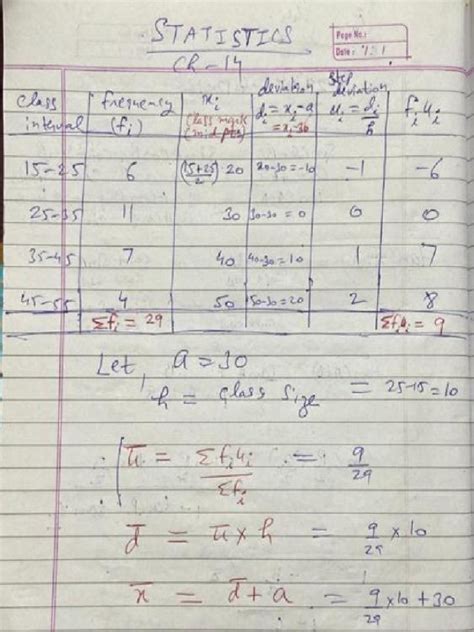 STATISTICS
Page No.:
Date: 
Ch-14
class interval | frequency (fi) | xi (class mark) (mid pt) | deviation di = xi-a = xi-30 | step deviation ui = di/h | fiui
15-25 | 6 | (15+25)/2 20 | 20-30=-10 | -1 | -6
25-35 | 11 | 30 | 30-30=0 | 0 | 0
35-45 | 7 | 40 | 40-30=10 | 1 | 7
45-55 | 4 | 50 | 50-30=20 | 2 | 8
Σfi = 29 | Σfiui = 9
Let, a = 30
h = class size = 25-15=10
ū = Σfiui/Σfi = 9/29
d̄ = ū x h = 9/29 x 10
x̄ = d̄ + a = 9/29 x 10 + 30